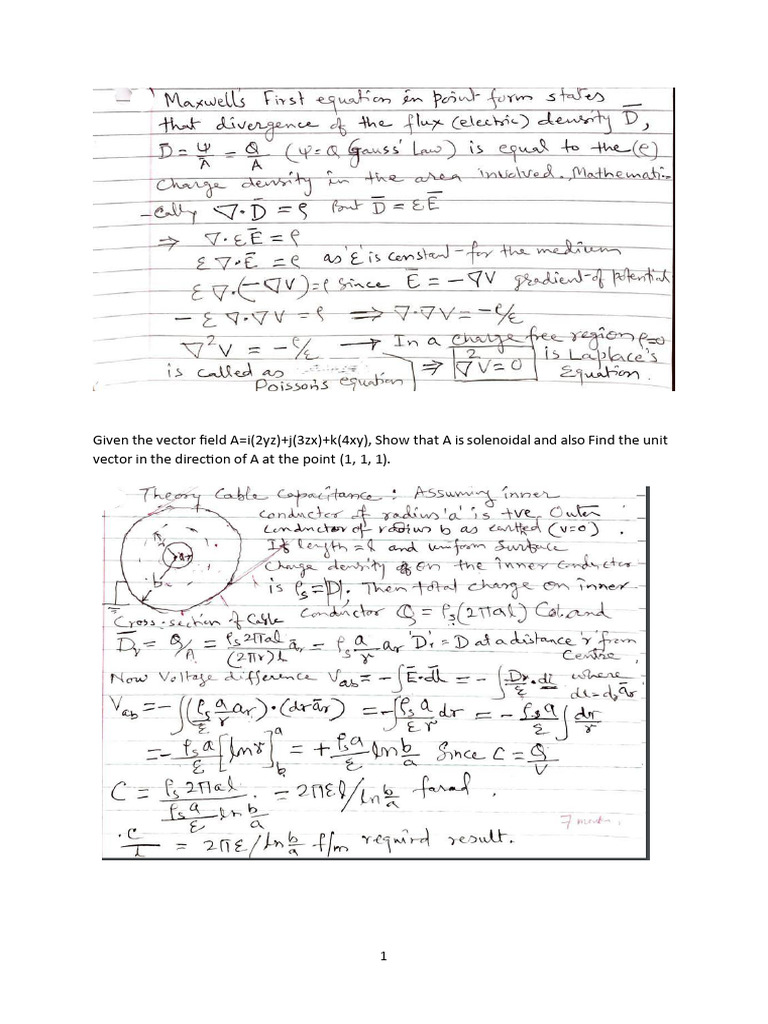 Maxwell's First equation in point form states
that divergence of the flux (electric) density D̅,
D̅ = Ψ/A̅ = Q/A (Ψ=Q Gauss' Law) is equal to the (ρ)
charge density in the area involved. Mathemati-
-cally ∇·D̅ = ρ But D̅ = εE̅
⇒ ∇·εE̅ = ρ
ε∇·E̅ = ρ as 'ε' is constant for the medium
ε∇·(-∇V) = ρ since E̅ = -∇V gradient of potential
- ε∇·∇V = ρ ⇒ ∇·∇V = -ρ/ε
∇²V = -ρ/ε → In a charge free region ρ=0
is called as Poisson's equation ⇒ ∇²V = 0 is Laplace's Equation.
Given the vector field A=i(2yz)+j(3zx)+k(4xy), Show that A is solenoidal and also Find the unit
vector in the direction of A at the point (1, 1, 1).
Theory Cable Capacitance: Assuming inner
conductor of radius 'a' is +ve. Outer
conductor of radius b as earthed (V=0).
Its length = l and uniform surface
charge density on the inner conductor
is ρs = |D|. Then total charge on inner
Cross-section of Cable conductor Q = ρs(2πal) Col. and
D̅r = Q/A = ρs2πal/(2πr)l a̅r = ρs a/r ar 'Dr' = D at a distance 'r' from Centre.
Now Voltage difference Vab = -∫E̅·dl̅ = -∫Dr/ε·dl where dl = dr a̅r
Vab = -∫(ρs/ε a/r ar)·(dr a̅r) = -∫ρs a/εr dr = -ρs a/ε ∫dr/r
= -ρs a/ε [ln r]ᵃb = +ρs a/ε ln b/a Since C = Q/V
C = ρs2πal / (ρs a/ε ln b/a) = 2πεl/ln b/a farad.
7 marks
∴ C/L = 2πε/ln b/a f/m required result.
1